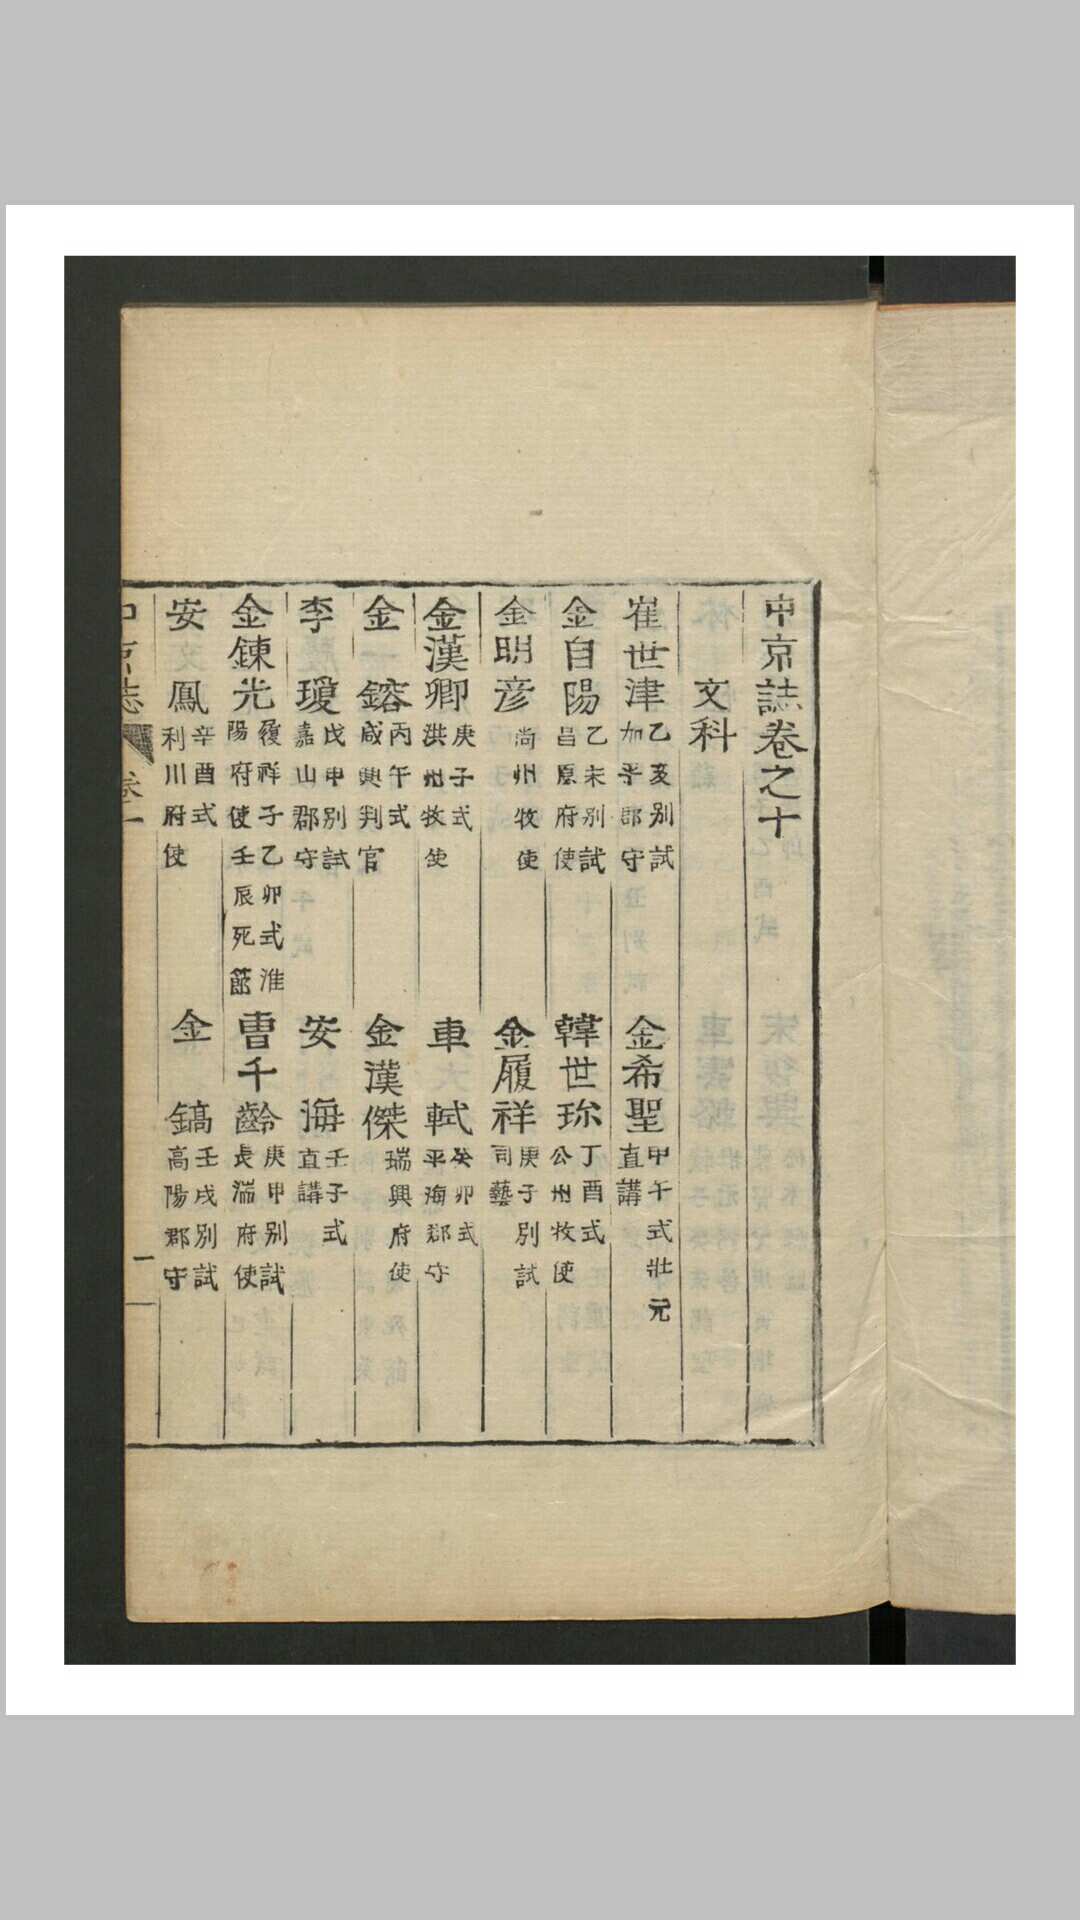 中京誌卷之十
文科
崔世津 乙亥別試加平郡守
金希聖 甲午式壯元直講
金自陽 乙未別試昌原府使
韓世珎 丁酉式公州牧使
金明彦 尙州牧使
金履祥 庚子別試司藝
金漢卿 庚子式洪州牧使
車軾 癸卯式平海郡守
金鎔 丙午式咸興判官
金漢傑 瑞興府使
李瓊 戊申別試嘉山郡守
安海 壬子式直講
金鍊光 履祥子乙卯式淮陽府使壬辰死節
曺千齡 庚申別試長湍府使
安鳳 辛酉式利川府使
金鎬 壬戌別試高陽郡守
中京誌 卷十 一